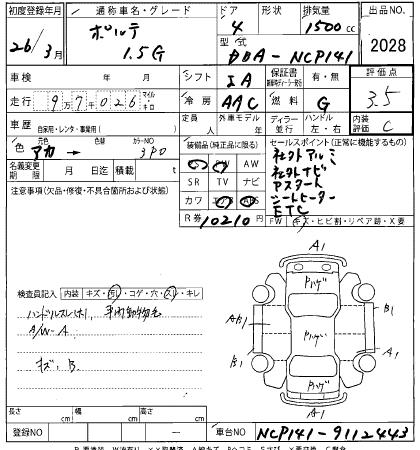 初度登録年月 通称車名・グレード ドア 形状 排気量 出品NO.
26/3月 ポルテ 1.5G 4 1500cc 2028
型式 DBA-NCP141
車検 年 月 シフト IA 保証書 有・無 評価点 3.5
走行 9万7千026 マイル キロ 冷房 AAC 燃料 G
車歴 自家用・レンタ・事業用( ) 定員 人 外車モデル 年 ディーラー 並行 ハンドル 左・右 内装評価 C
色 アカ → 色替 カラーNO 3P0
装備品(純正品に限る) セールスポイント(正常に機能するもの)
PS PW AW
SR TV ナビ
カワ エアB ABS
社外アルミ
社外ナビ
Pスタート
シートヒーター
ETC
名義変更期限 月 日迄 積載 t
R券 10210円
FW キズ・ヒビ割・リペア跡・X要
注意事項(欠品・修復・不具合箇所および状態)
検査員記入 内装 キズ・汚れ・コゲ・穴・スレ・キレ
ハンドルスレ(大)、車内動物毛
A/W-A
キズ、B
A1
Pハゲ
AB1
B1
B1
Pハゲ
A1
Pハゲ
A1
長さ cm 幅 cm 高さ cm
登録NO 車台NO NCP141-9112443